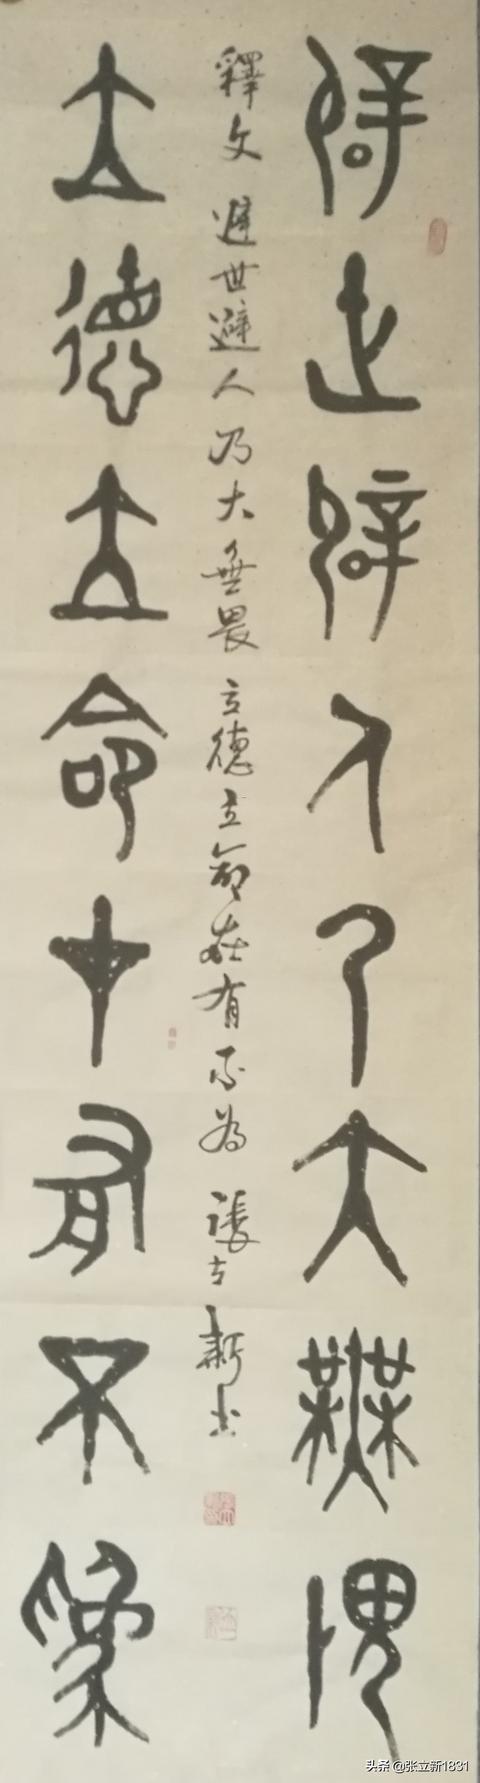 避世避人乃大無畏
釋文 避世避人乃大無畏 立德立命在有不為 張立新書
立德立命在有不為
头条 @张立新1831